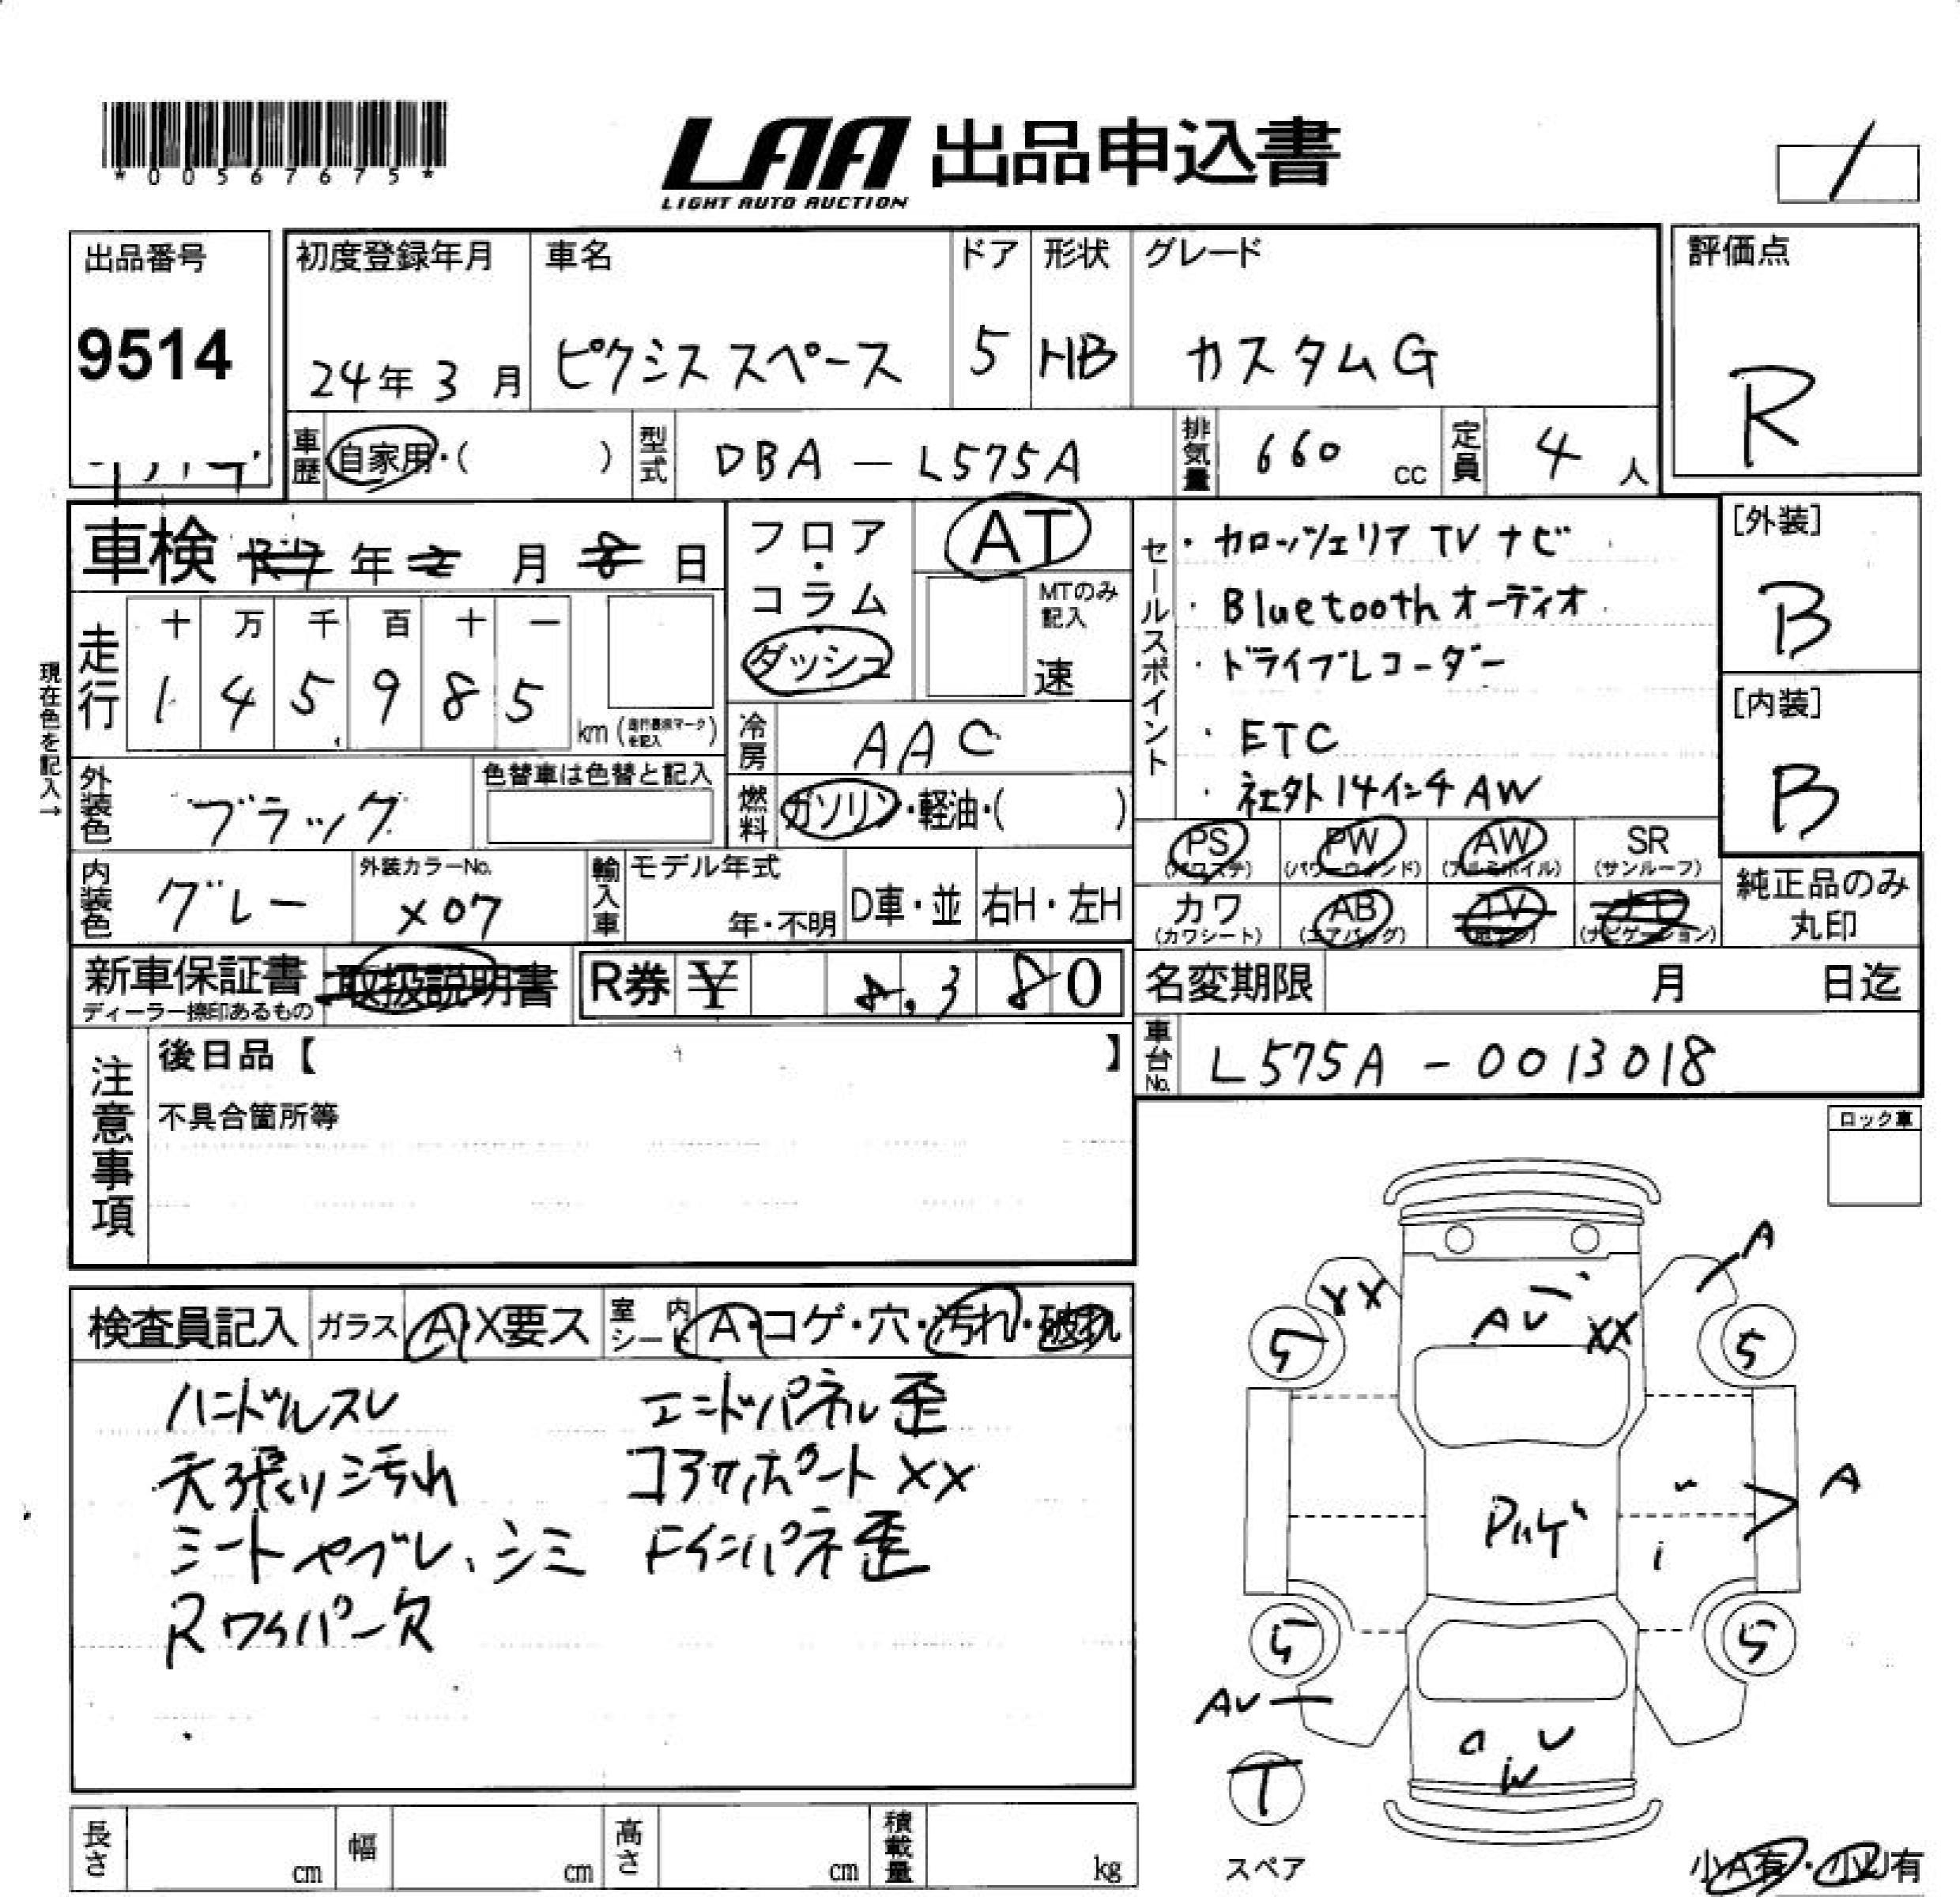 *00567675*
LAA 出品申込書
LIGHT AUTO AUCTION
出品番号
9514
初度登録年月
24年 3 月
車名
ピクシススペース
ドア
5
形状
HB
グレード
カスタムG
評価点
R
車歴
自家用・( )
型式
DBA - L575A
排気量
660 cc
定員
4 人
車検 R7 年 2 月 8 日
フロア・コラム
ダッシュ
AT
MTのみ記入
速
セールスポイント
・カロッツェリア TV ナビ
・Bluetooth オーディオ
・ドライブレコーダー
・ETC
・社外14インチAW
[外装]
B
[内装]
B
現在色を記入→
走行
十 万 千 百 十 一
1 4 5 9 8 5
km
冷房
AAC
外装色
ブラック
色替車は色替と記入
燃料
ガソリン・軽油・( )
PS (パワステ)
PW (パワーウインド)
AW (アルミホイル)
SR (サンルーフ)
内装色
グレー
外装カラーNo.
X07
輸入車
モデル年式
年・不明
D車・並
右H・左H
カワ (カワシート)
AB (エアバッグ)
TV
(ナビゲーション)
純正品のみ
丸印
新車保証書
ディーラー捺印あるもの
取扱説明書
R券 ¥ 8,380
名変期限 月 日迄
車台No.
L575A - 0013018
注意事項
後日品【 】
不具合箇所等
ロック車
検査員記入
ガラス
A・X要ス
室内シート
A・コゲ・穴・汚れ・破れ
ハンドルスレ
エンドパネル歪
天張り汚れ
コアサポート XX
シートヤブレ、シミ
Fインパネ歪
Rワイパー欠
A
XX
AU
XX
5
5
A
5
5
AU
U
W
T
スペア
小A有・小U有
長さ
cm
幅
cm
高さ
cm
積載量
kg